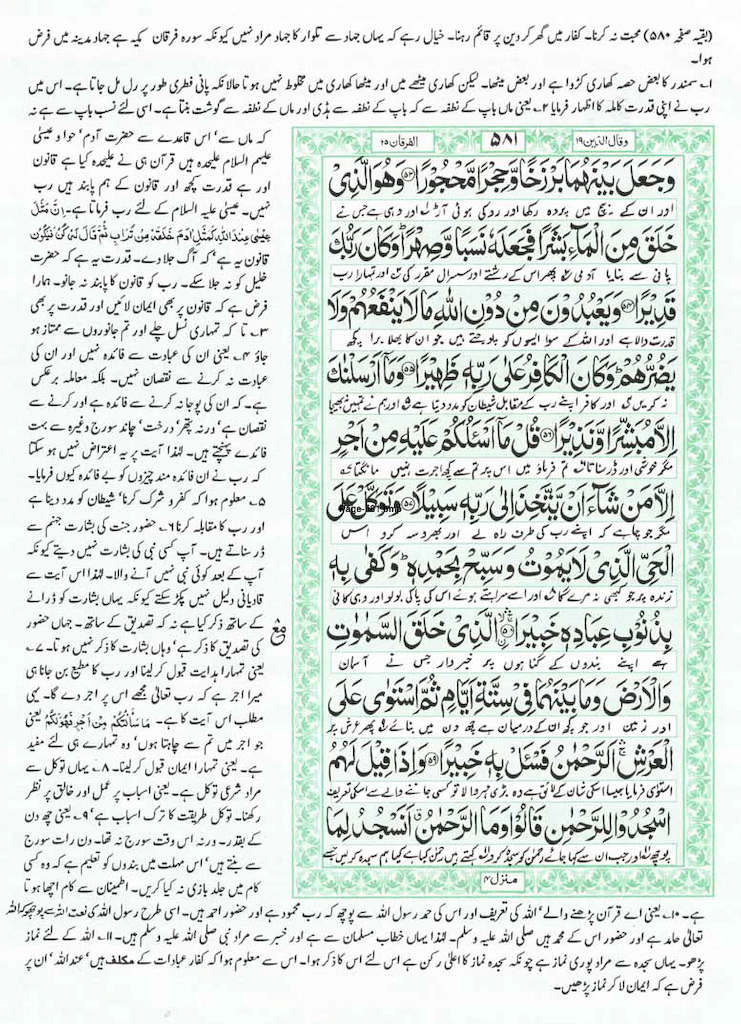 (بقیہ صفحہ ۵۸۰) محبت نہ کرنا۔ کفار میں گھر کر دین پر قائم رہنا۔ خیال رہے کہ یہاں جہاد سے تلوار کا جہاد مراد نہیں کیونکہ سورہ فرقان مکیہ ہے جہاد مدینہ میں فرض
ہوا۔
۱۔ سمندر کا بعض حصہ کھاری کڑوا ہے اور بعض میٹھا۔ لیکن کھاری میٹھے میں اور میٹھا کھاری میں مخلوط نہیں ہوتا حالانکہ پانی فطری طور پر رل مل جاتا ہے۔ اس میں
رب نے اپنی قدرت کاملہ کا اظہار فرمایا ۲۔ یعنی ماں باپ کے نطفہ سے کہ باپ کے نطفہ سے ہڈی اور ماں کے نطفہ سے گوشت بنتا ہے۔ اسی لئے نسب باپ سے ہے نہ
وقال الذین ۱۹
۵۸۱
الفرقان ۲۵
وَجَعَلَ بَيْنَهُمَا بَرْزَخًا وَّحِجْرًا مَّحْجُورًا ﴿۵۳﴾ وَهُوَ الَّذِي
اور ان کے بیچ میں پردہ رکھا اور روکی ہوئی آڑ اور وہی ہے جس نے
خَلَقَ مِنَ الْمَاءِ بَشَرًا فَجَعَلَهُ نَسَبًا وَّصِهْرًا وَكَانَ رَبُّكَ
پانی سے بنایا آدمی پھر اس کے رشتے اور سسرال مقرر کی اور تمہارا رب
قَدِيرًا ﴿۵۴﴾ وَيَعْبُدُونَ مِنْ دُونِ اللّٰهِ مَا لَا يَنْفَعُهُمْ وَلَا
قدرت والا ہے اور اللہ کے سوا ایسوں کو پوجتے ہیں جو ان کا بھلا برا کچھ
يَضُرُّهُمْ وَكَانَ الْكَافِرُ عَلٰى رَبِّهٖ ظَهِيرًا ﴿۵۵﴾ وَمَا أَرْسَلْنٰكَ
نہ کریں اور کافر اپنے رب کے مقابل شیطان کو مدد دیتا ہے اور ہم نے تمہیں نہ بھیجا
إِلَّا مُبَشِّرًا وَّنَذِيرًا ﴿۵۶﴾ قُلْ مَا أَسْـَٔلُكُمْ عَلَيْهِ مِنْ أَجْرٍ
مگر خوشی اور ڈر سناتا تم فرماؤ میں اس پر تم سے کچھ اجرت نہیں مانگتا
إِلَّا مَنْ شَاءَ أَنْ يَّتَّخِذَ إِلٰى رَبِّهٖ سَبِيلًا ﴿۵۷﴾ وَتَوَكَّلْ عَلَى
مگر جو چاہے کہ اپنے رب کی طرف راہ لے اور بھروسہ کرو اس
الْحَيِّ الَّذِي لَا يَمُوتُ وَسَبِّحْ بِحَمْدِهٖ وَكَفٰى بِهٖ
زندہ پر جو کبھی نہ مرے گا اور اسے سراہتے ہوئے اس کی پاکی بولو اور وہی کافی
بِذُنُوبِ عِبَادِهٖ خَبِيرًا ﴿۵۸﴾ الَّذِي خَلَقَ السَّمٰوٰتِ
ہے اپنے بندوں کے گناہوں پر خبردار جس نے آسمان
وَالْأَرْضَ وَمَا بَيْنَهُمَا فِي سِتَّةِ أَيَّامٍ ثُمَّ اسْتَوٰى عَلَى
اور زمین اور جو کچھ ان کے درمیان ہے چھ دن میں بنائے پھر عرش پر
الْعَرْشِ الرَّحْمٰنُ فَسْـَٔلْ بِهٖ خَبِيرًا ﴿۵۹﴾ وَإِذَا قِيلَ لَهُمُ
استوی فرمایا جیسا اسکی شان کے لائق ہے وہ بڑی مہر والا تو کسی جاننے والے سے اسکی تعریف
اسْجُدُوا لِلرَّحْمٰنِ قَالُوا وَمَا الرَّحْمٰنُ أَنَسْجُدُ لِمَا
پوچھ اور جب ان سے کہا جائے رحمٰن کو سجدہ کرو کہتے ہیں رحمٰن کیا ہے کیا ہم سجدہ کر لیں جسے
منزل ۴
کہ ماں سے' اس قاعدے سے حضرت آدم' حوا و عیسیٰ
علیہم السلام علیحدہ ہیں قرآن ہی نے علیحدہ کیا ہے قانون
اور ہے قدرت کچھ اور قانون کے ہم پابند ہیں رب
نہیں۔ عیسیٰ علیہ السلام کے لئے رب فرماتا ہے۔ اِنَّ مَثَلَ
عِیْسٰی عِنْدَ اللّٰهِ کَمَثَلِ اٰدَمَ خَلَقَهٗ مِنْ تُرَابٍ ثُمَّ قَالَ لَهٗ کُنْ فَیَکُوْنُ
قانون یہ ہے' کہ آگ جلا دے۔ قدرت یہ ہے کہ حضرت
خلیل کو نہ جلا سکے۔ رب کو قانون کا پابند نہ جانو۔ ہمارا
فرض ہے کہ قانون پر بھی ایمان لائیں اور قدرت پر بھی
۳۔ تا کہ تمہاری نسل چلے اور تم جانوروں سے ممتاز ہو
جاؤ ۴۔ یعنی ان کی عبادت سے فائدہ نہیں اور ان کی
عبادت نہ کرنے سے نقصان نہیں۔ بلکہ معاملہ برعکس
ہے۔ کہ ان کی پوجا نہ کرنے سے فائدہ ہے اور کرنے سے
نقصان ہے' ورنہ پتھر' درخت' چاند سورج وغیرہ سے بہت
فائدے پہنچتے ہیں۔ لہٰذا آیت پر یہ اعتراض نہیں ہو سکتا
کہ رب نے ان فائدہ مند چیزوں کو بے فائدہ کیوں فرمایا۔
۵۔ معلوم ہوا کہ کفر و شرک کرنا' شیطان کو مدد دینا ہے
اور رب کا مقابلہ کرنا ۶۔ حضور جنت کی بشارت جہنم سے
ڈر سناتے ہیں۔ آپ کسی نبی کی بشارت نہیں دیتے کیونکہ
آپ کے بعد کوئی نبی نہیں آنے والا۔ لہٰذا اس آیت سے
قادیانی دلیل نہیں پکڑ سکتے کیونکہ یہاں بشارت کو ڈرانے
کے ساتھ ذکر کیا ہے نہ کہ تصدیق کے ساتھ۔ جہاں حضور
کی تصدیق کا ذکر ہے' وہاں بشارت کا ذکر نہیں ہوتا۔ ۷۔
یعنی تمہارا ہدایت قبول کر لینا اور رب کا مطیع بن جانا ہی
میرا اجر ہے کہ رب تعالیٰ مجھے اس پر اجر دے گا۔ یہی
مطلب اس آیت کا ہے۔ مَا سَاَلْتُکُمْ مِنْ اَجْرٍ فَهُوَ لَکُمْ یعنی
جو اجر میں تم سے چاہتا ہوں' وہ تمہارے ہی لئے مفید
ہے۔ یعنی تمہارا ایمان قبول کر لینا۔ ۸۔ یہاں توکل سے
مراد شرعی توکل ہے۔ یعنی اسباب پر عمل اور خالق پر نظر
رکھنا۔ توکل طریقت کا ترک اسباب ہے' ۹۔ یعنی چھ دن
کے بقدر۔ ورنہ اس وقت سورج نہ تھا۔ دن رات سورج
سے بنتے ہیں' اس مہلت میں بندوں کو تعلیم ہے کہ وہ کسی
کام میں جلد بازی نہ کیا کریں۔ اطمینان سے کام اچھا ہوتا
ہے۔ ۱۰۔ یعنی اے قرآن پڑھنے والے' اللہ کی تعریف اور اس کی حمد رسول اللہ سے پوچھ کہ رب محمود ہے اور حضور احمد ہیں۔ اسی طرح رسول اللہ کی نعت اللہ سے پوچھو کہ اللہ
تعالیٰ حامد ہے اور حضور اس کے محمد ہیں صلی اللہ علیہ وسلم۔ لہٰذا یہاں خطاب مسلمان سے ہے اور خبیر سے مراد نبی صلی اللہ علیہ وسلم ہیں۔ ۱۱۔ اللہ کے لئے نماز
پڑھو۔ یہاں سجدہ سے مراد پوری نماز ہے چونکہ سجدہ نماز کا اعلیٰ رکن ہے اس لئے اس کا ذکر ہوا۔ اس سے معلوم ہوا کہ کفار عبادات کے مکلف ہیں' عند اللہ' ان پر
فرض ہے کہ ایمان لا کر نماز پڑھیں۔